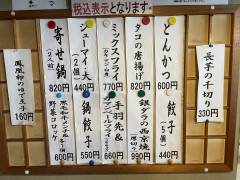 税込表示となります
長芋の千切り
330円
とんかつ
600円
タコの唐揚げ
820円
ミックスフライ
770円
シューマイ大
(2個)
440円
寄せ鍋
(2人前)
820円
鳳凰卵のゆで玉子
160円
餃子
(5個)
440円
銀ダラの西京焼
990円
手羽先&
550円
鍋餃子
660円
野菜コロッケ
600円